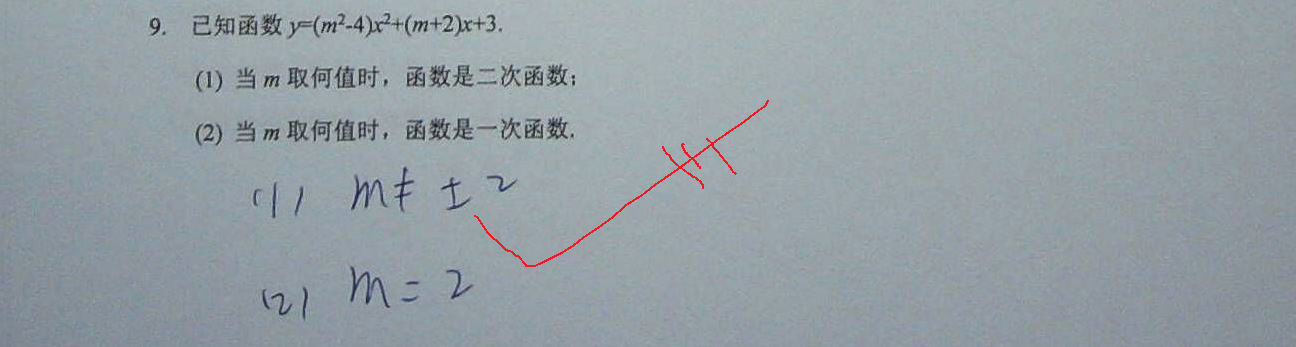 9. 已知函数 y=(m²-4)x²+(m+2)x+3.
(1) 当 m 取何值时，函数是二次函数；
(2) 当 m 取何值时，函数是一次函数.
(1) m≠±2
(2) m=2